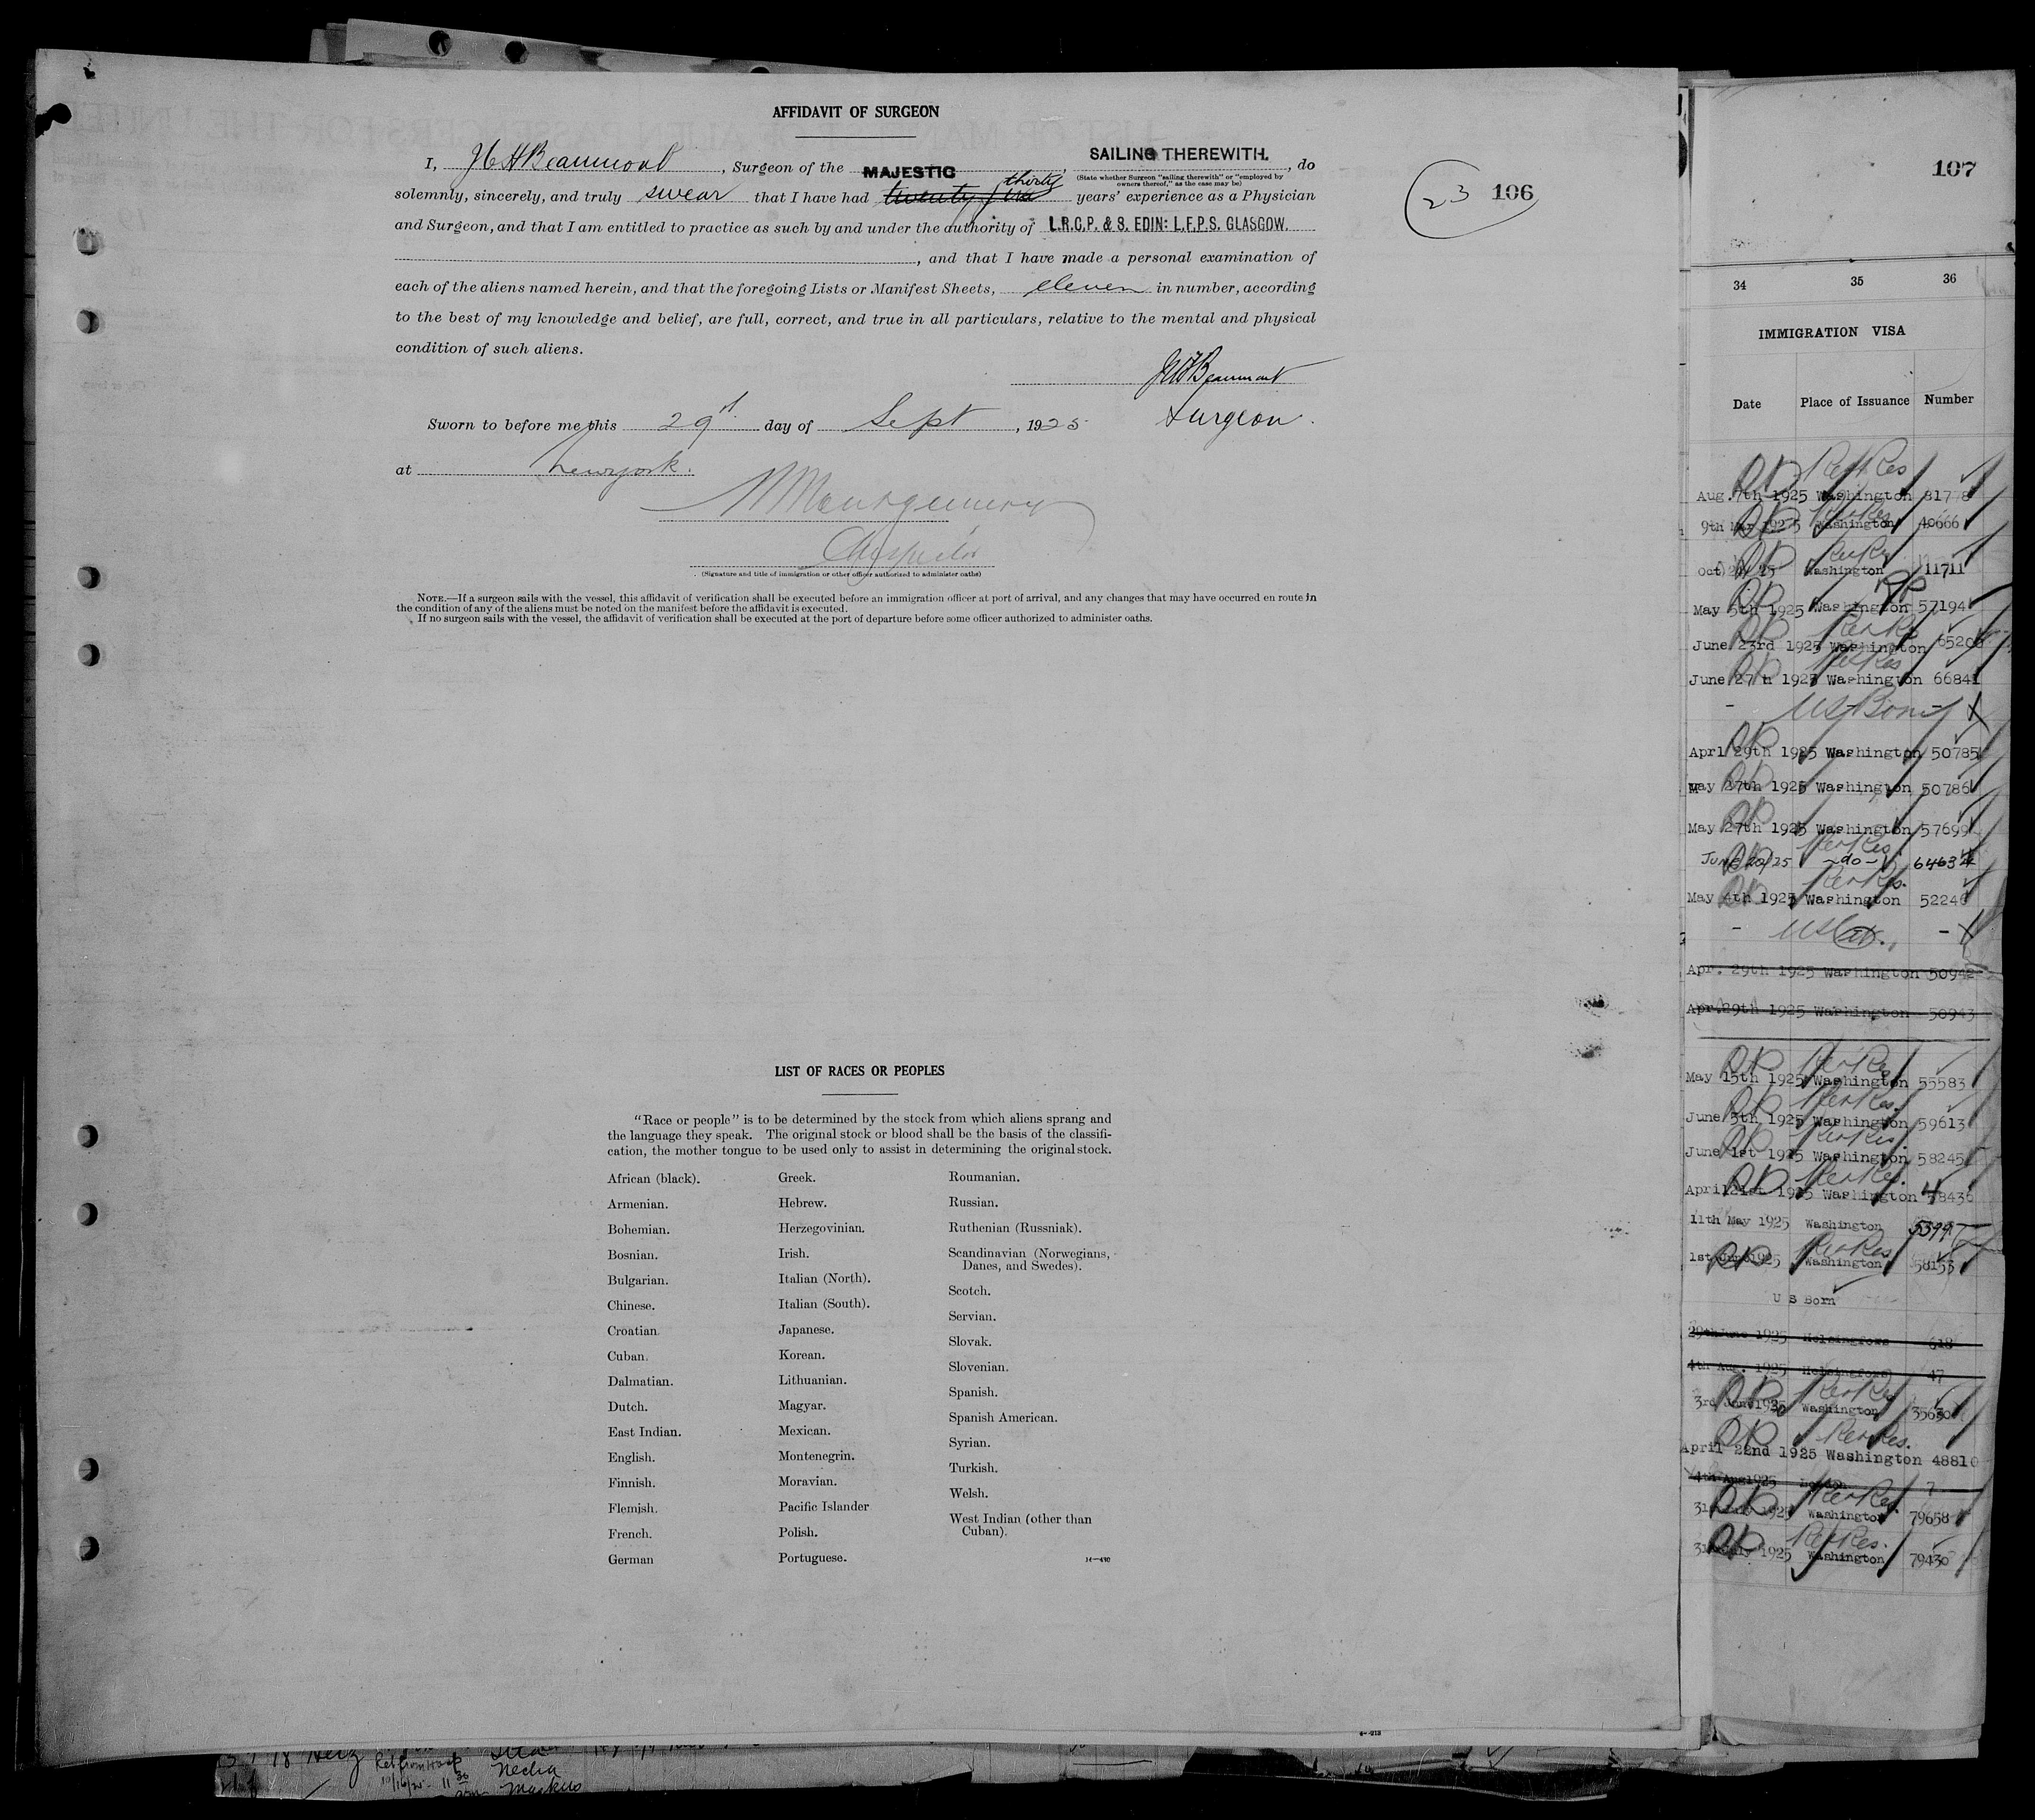 AFFIDAVIT OF SURGEON
I, J H Beaumont, Surgeon of the MAJESTIC, SAILING THEREWITH., do
(State whether Surgeon "sailing therewith" or "employed by
owners thereof," as the case may be)
thirty
solemnly, sincerely, and truly swear that I have had twenty five years' experience as a Physician
and Surgeon, and that I am entitled to practice as such by and under the authority of L.R.C.P. & S. EDIN: L.F.P.S. GLASGOW.
, and that I have made a personal examination of
each of the aliens named herein, and that the foregoing Lists or Manifest Sheets, eleven in number, according
to the best of my knowledge and belief, are full, correct, and true in all particulars, relative to the mental and physical
condition of such aliens.
Beaumont
Surgeon.
Sworn to before me this 29 day of Sept, 1925
at New york.
Montgomery
Inspector
(Signature and title of immigration or other officer authorized to administer oaths)
NOTE.—If a surgeon sails with the vessel, this affidavit of verification shall be executed before an immigration officer at port of arrival, and any changes that may have occurred en route in
the condition of any of the aliens must be noted on the manifest before the affidavit is executed.
If no surgeon sails with the vessel, the affidavit of verification shall be executed at the port of departure before some officer authorized to administer oaths.
23 106
LIST OF RACES OR PEOPLES
"Race or people" is to be determined by the stock from which aliens sprang and
the language they speak. The original stock or blood shall be the basis of the classifi-
cation, the mother tongue to be used only to assist in determining the original stock.
African (black).
Armenian.
Bohemian.
Bosnian.
Bulgarian.
Chinese.
Croatian.
Cuban.
Dalmatian.
Dutch.
East Indian.
English.
Finnish.
Flemish.
French.
German
Greek.
Hebrew.
Herzegovinian.
Irish.
Italian (North).
Italian (South).
Japanese.
Korean.
Lithuanian.
Magyar.
Mexican.
Montenegrin.
Moravian.
Pacific Islander
Polish.
Portuguese.
Roumanian.
Russian.
Ruthenian (Russniak).
Scandinavian (Norwegians,
Danes, and Swedes).
Scotch.
Servian.
Slovak.
Slovenian.
Spanish.
Spanish American.
Syrian.
Turkish.
Welsh.
West Indian (other than
Cuban).
107
34 35 36
IMMIGRATION VISA
Date Place of Issuance Number
Aug. 7th 1925 Washington 81778
9th May 1925 Washington 40666
Oct Washington 11711
May 5th 1925 Washington 57194
June 23rd 1925 Washington 65206
June 27th 1925 Washington 66841
- US Born -
Aprl 29th 1925 Washington 50785
May 27th 1925 Washington 50786
May 27th 1925 Washington 57699
June 20/25 -do- 64634
May 4th 1925 Washington 52246
- US Cit. -
Apr. 29th 1925 Washington 50942
Apr. 29th 1925 Washington 50943
May 15th 1925 Washington 55583
June 5th 1925 Washington 59613
June 1st 1925 Washington 58245
April 21st 1925 Washington 48436
11th May 1925 Washington 5399
1st June 1925 Washington 58153
U S Born
29th June 1925 Helsingfors 618
4th Aug. 1925 Helsingfors 47
3rd June 1925 Washington 35630
April 22nd 1925 Washington 48810
4th Aug 1925 London
1925 Washington 79658
31st July 1925 Washington 79430